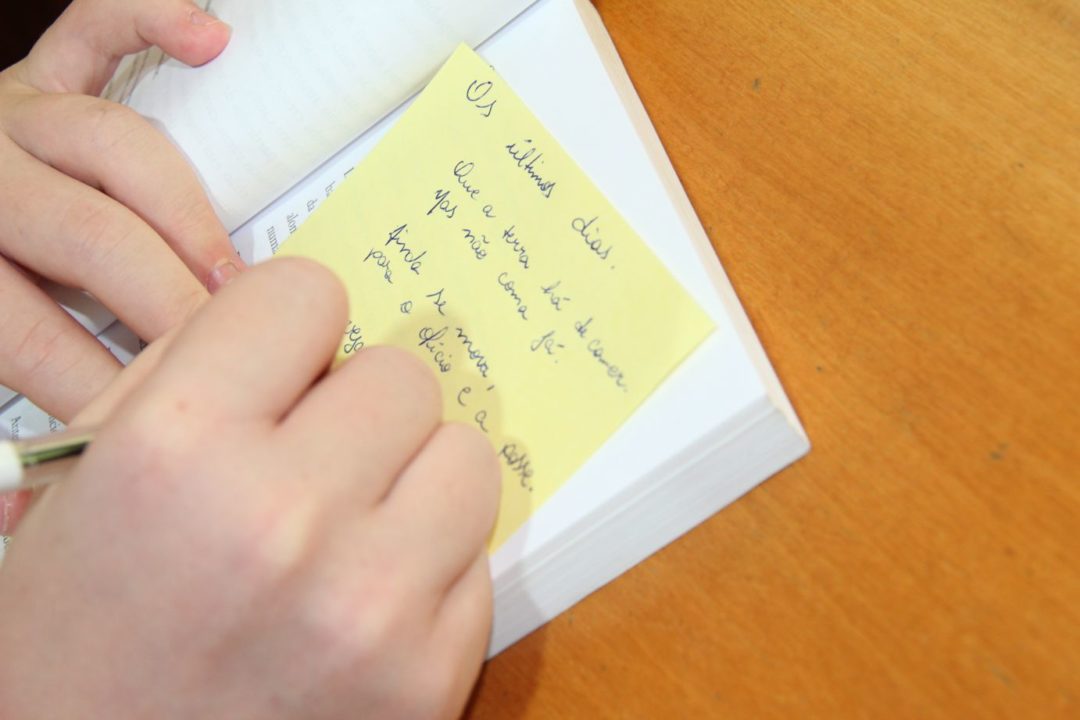 Os últimos dias.
Que a terra há de comer.
Mas não coma já.
Ainda se mova,
para o ofício e a posse.